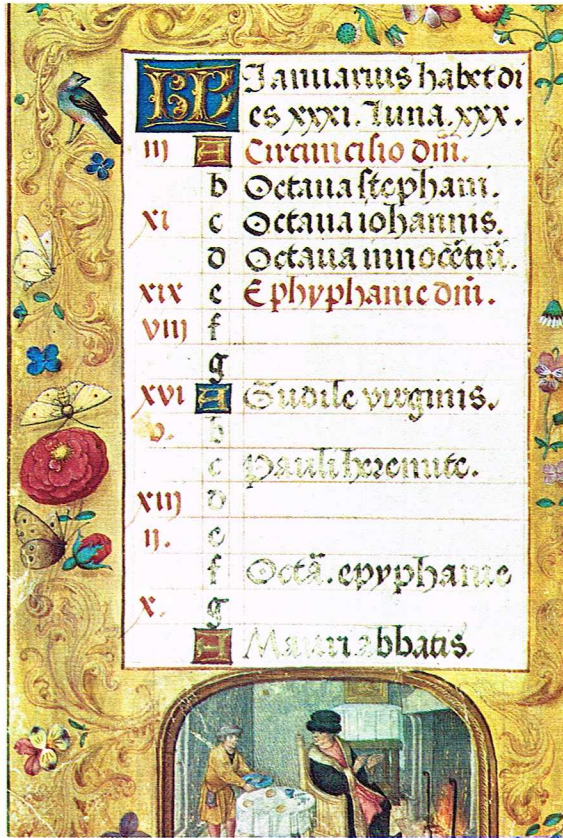 KL Januarius habet di
es xxxi. Luna. xxx.
iii A Circumcisio dñi.
b Octaua stephani.
xi c Octaua iohannis.
d Octaua innocẽtiũ.
xix e Ephyphanie dñi.
viii f
g
xvi A Gudile virginis.
v. b
c Pauli heremite.
xiii d
ii. e
f Octã. epyphanie
x. g
A Mauri abbatis.